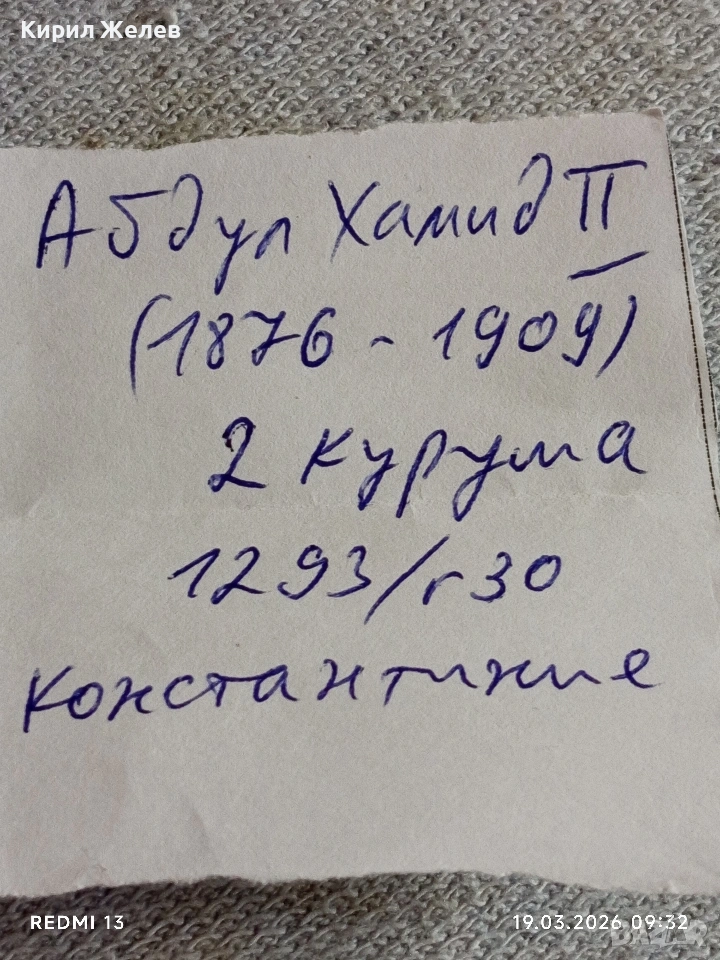 Кирил Желев
Абдул Хамид II
(1876 - 1909)
2 курума
1293/г30
Константиние
REDMI 13
19.03.2026 09:32